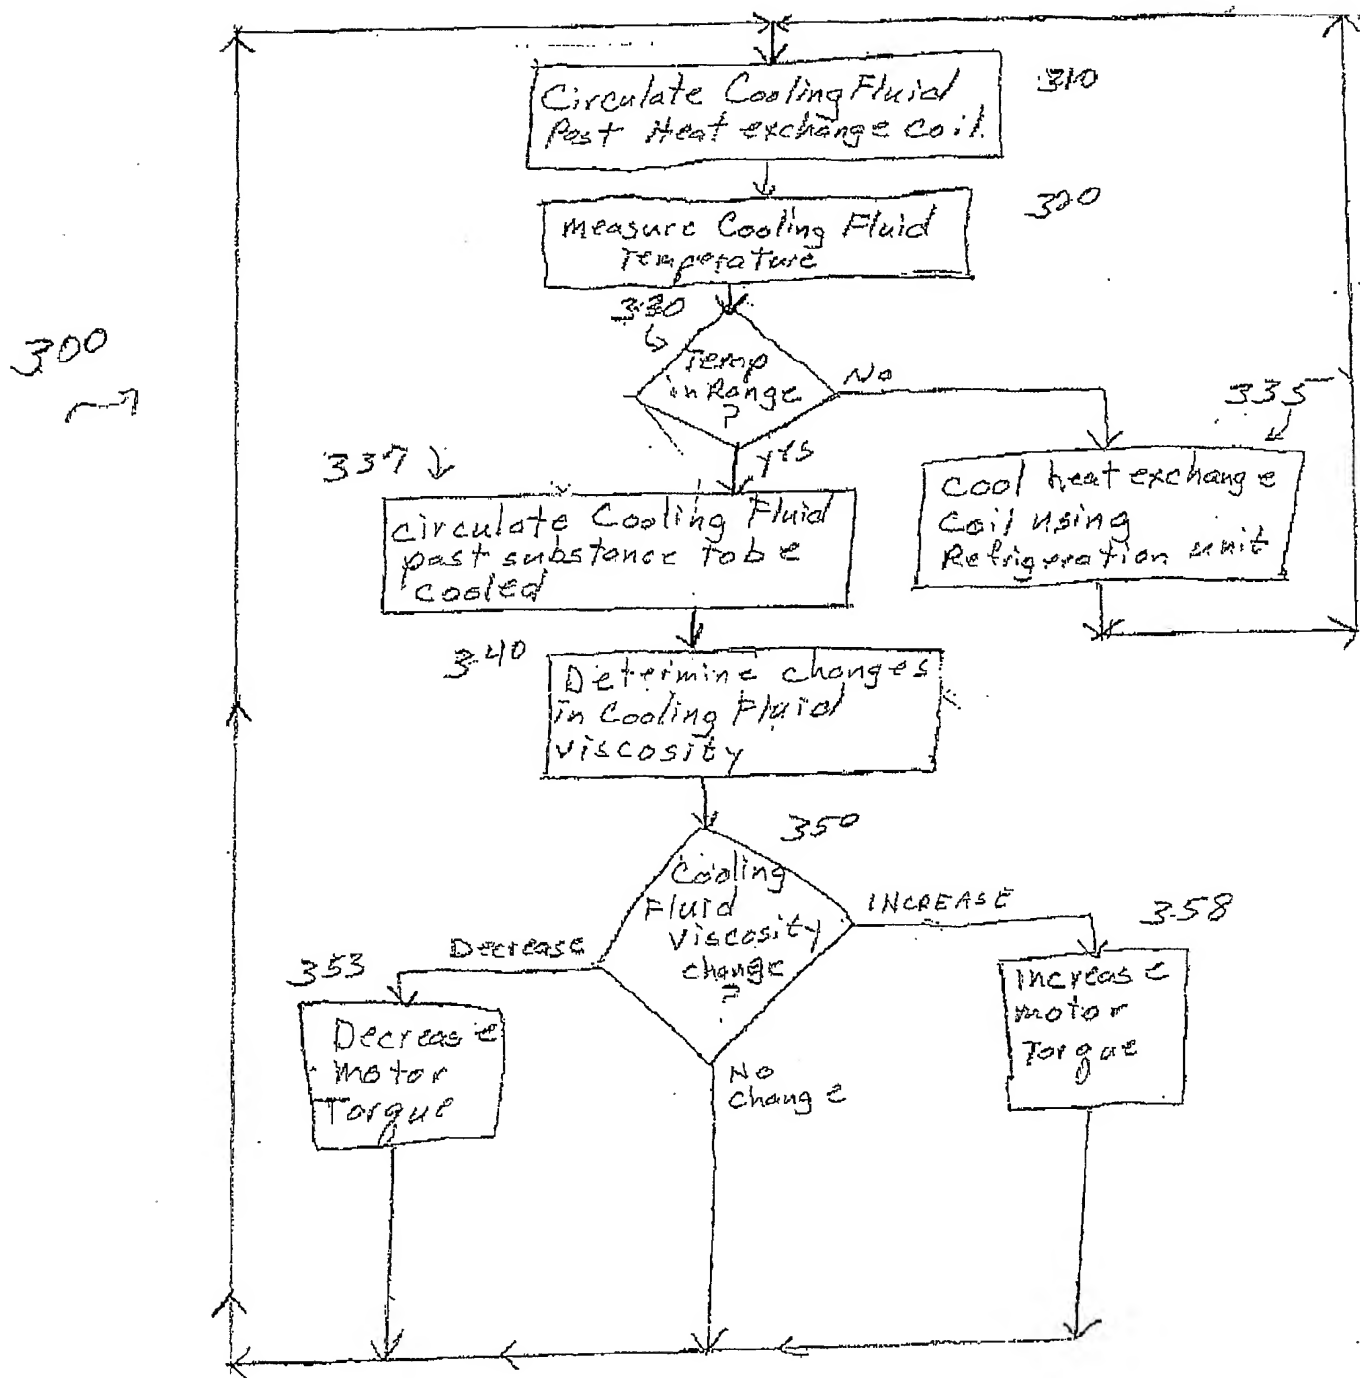 310
Circulate Cooling Fluid
Past Heat exchange coil.
320
measure Cooling Fluid
Temperature
330
300
Temp
in Range
?
No
yes
335
337
Cool heat exchange
Coil using
Refrigeration unit
circulate Cooling Fluid
past substance to be
cooled
340
Determine changes
in Cooling Fluid
viscosity
350
Cooling
Fluid
Viscosity
change
?
INCREASE
358
Decrease
353
Increase
motor
Torque
Decrease
motor
Torque
No
change